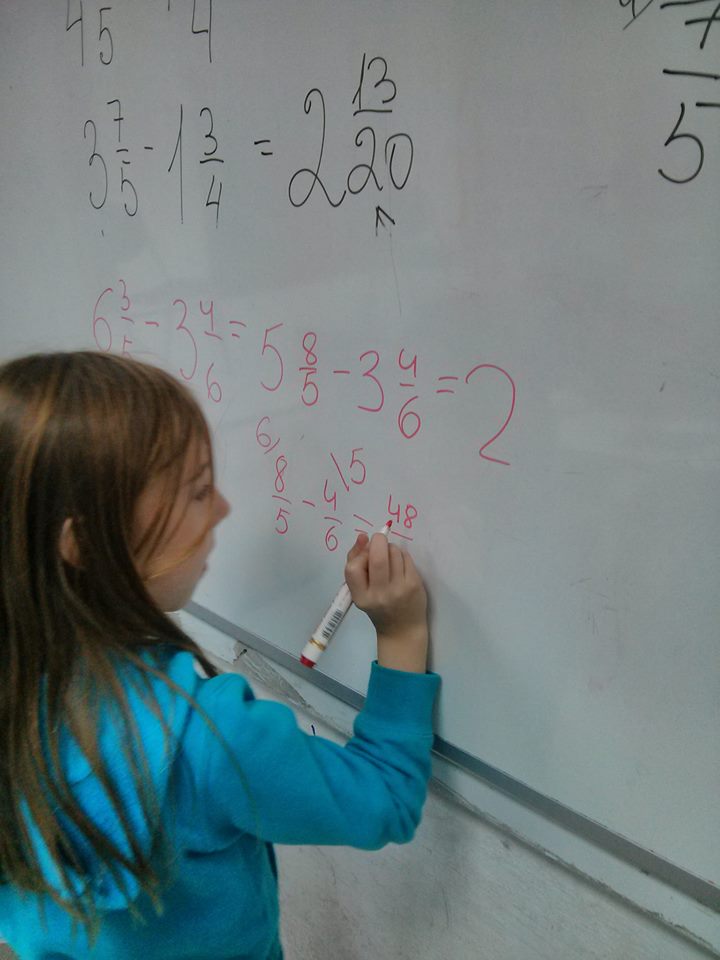 45 4
7
5
3 7/5 - 1 3/4 = 2 13/20
6 3/5 - 3 4/6 = 5 8/5 - 3 4/6 = 2
6/ \5
8/5 - 4/6 = 48